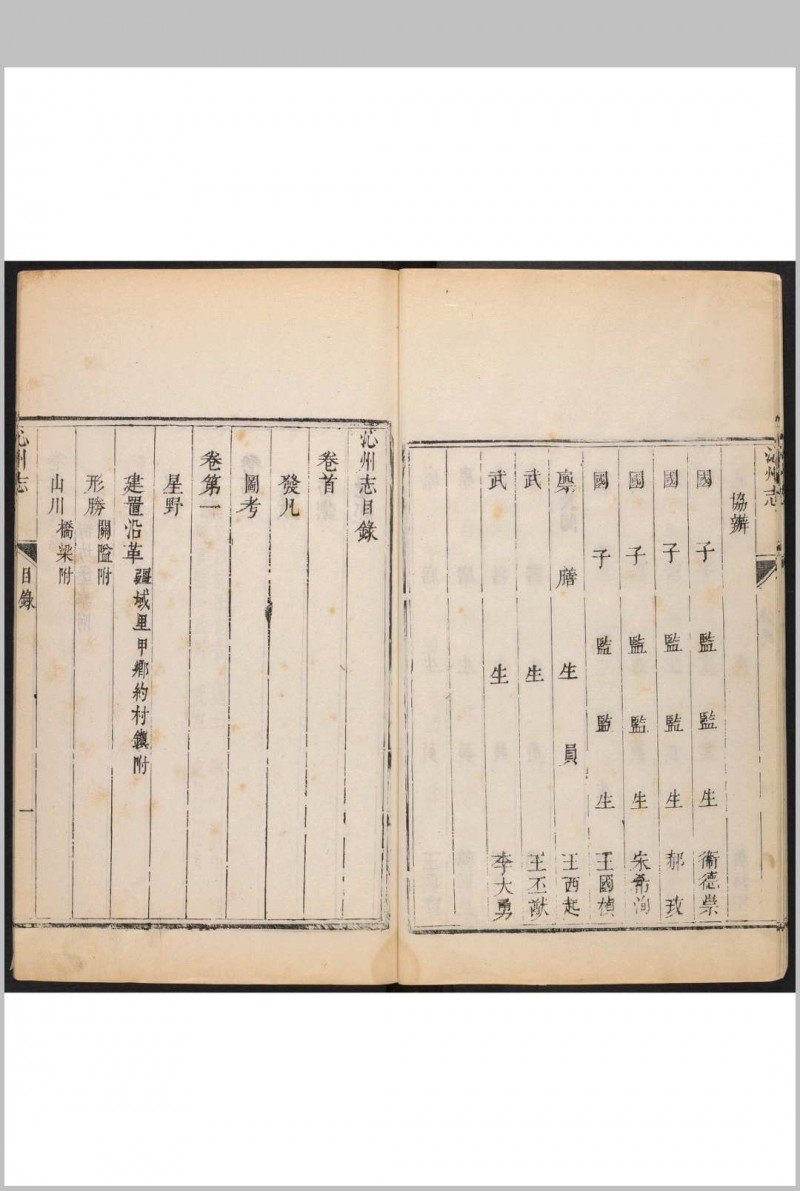 沁州志
協辦
國子監監生 衞德崇
國子監監生 郝玫
國子監監生 朱希洵
國子監監生 王國楨
廩膳生員 王西起
武生 王丕猷
武生 李大勇
沁州志目錄
卷首
發凡
圖考
卷第一
星野
建置沿革 疆域里甲鄉約村鎮附
形勝 關隘附
山川 橋梁附
沁州志 目錄 一